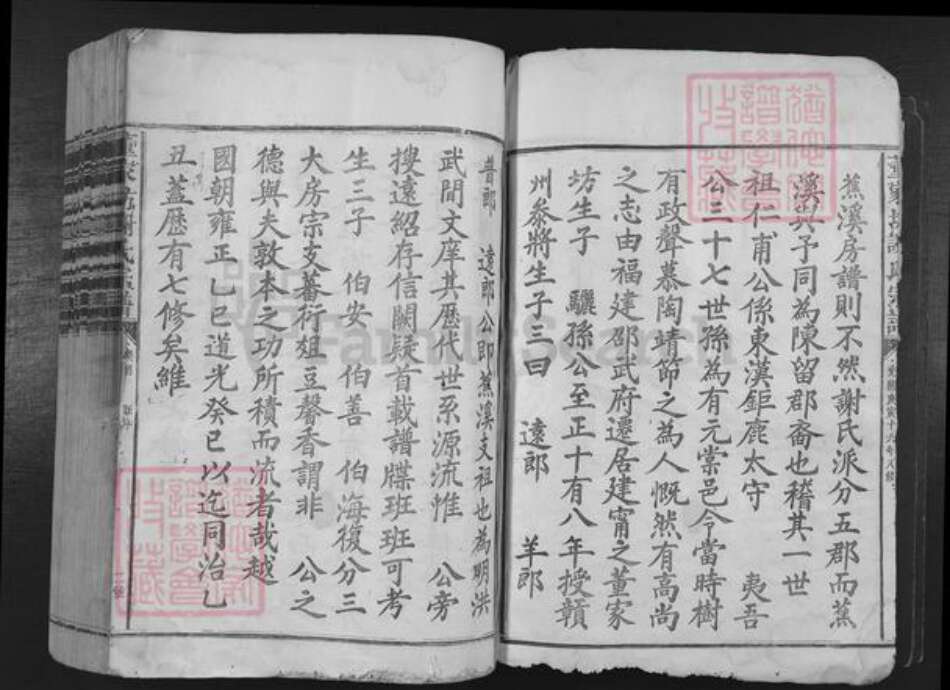 蕉溪房譜則不然謝氏派分五郡而蕉
溪與予同為陳留郡裔也稽其一世
祖仁甫公係東漢鉅鹿太守 夷吾
公三十七世孫為有元棠邑令當時樹
有政聲慕陶靖節之為人慨然有高尚
之志由福建邵武府還居建甯之董家
坊生子 驪孫公至正十有八年授贛
州叅將生子三曰 遠郎 羊郎
普郎 遠郎公即蕉溪支祖也為明洪
武間文庠其歷代世系源流惟 公旁
搜遠紹存信闕疑首載譜牒班班可考
生三子 伯安 伯善 伯海復分三
大房宗支蕃衍俎豆馨香謂非 公之
德與夫敦本之功所積而流者哉越
國朝雍正乙巳道光癸巳以迄同治乙
丑蓋歷有七修矣維
FamilySearch